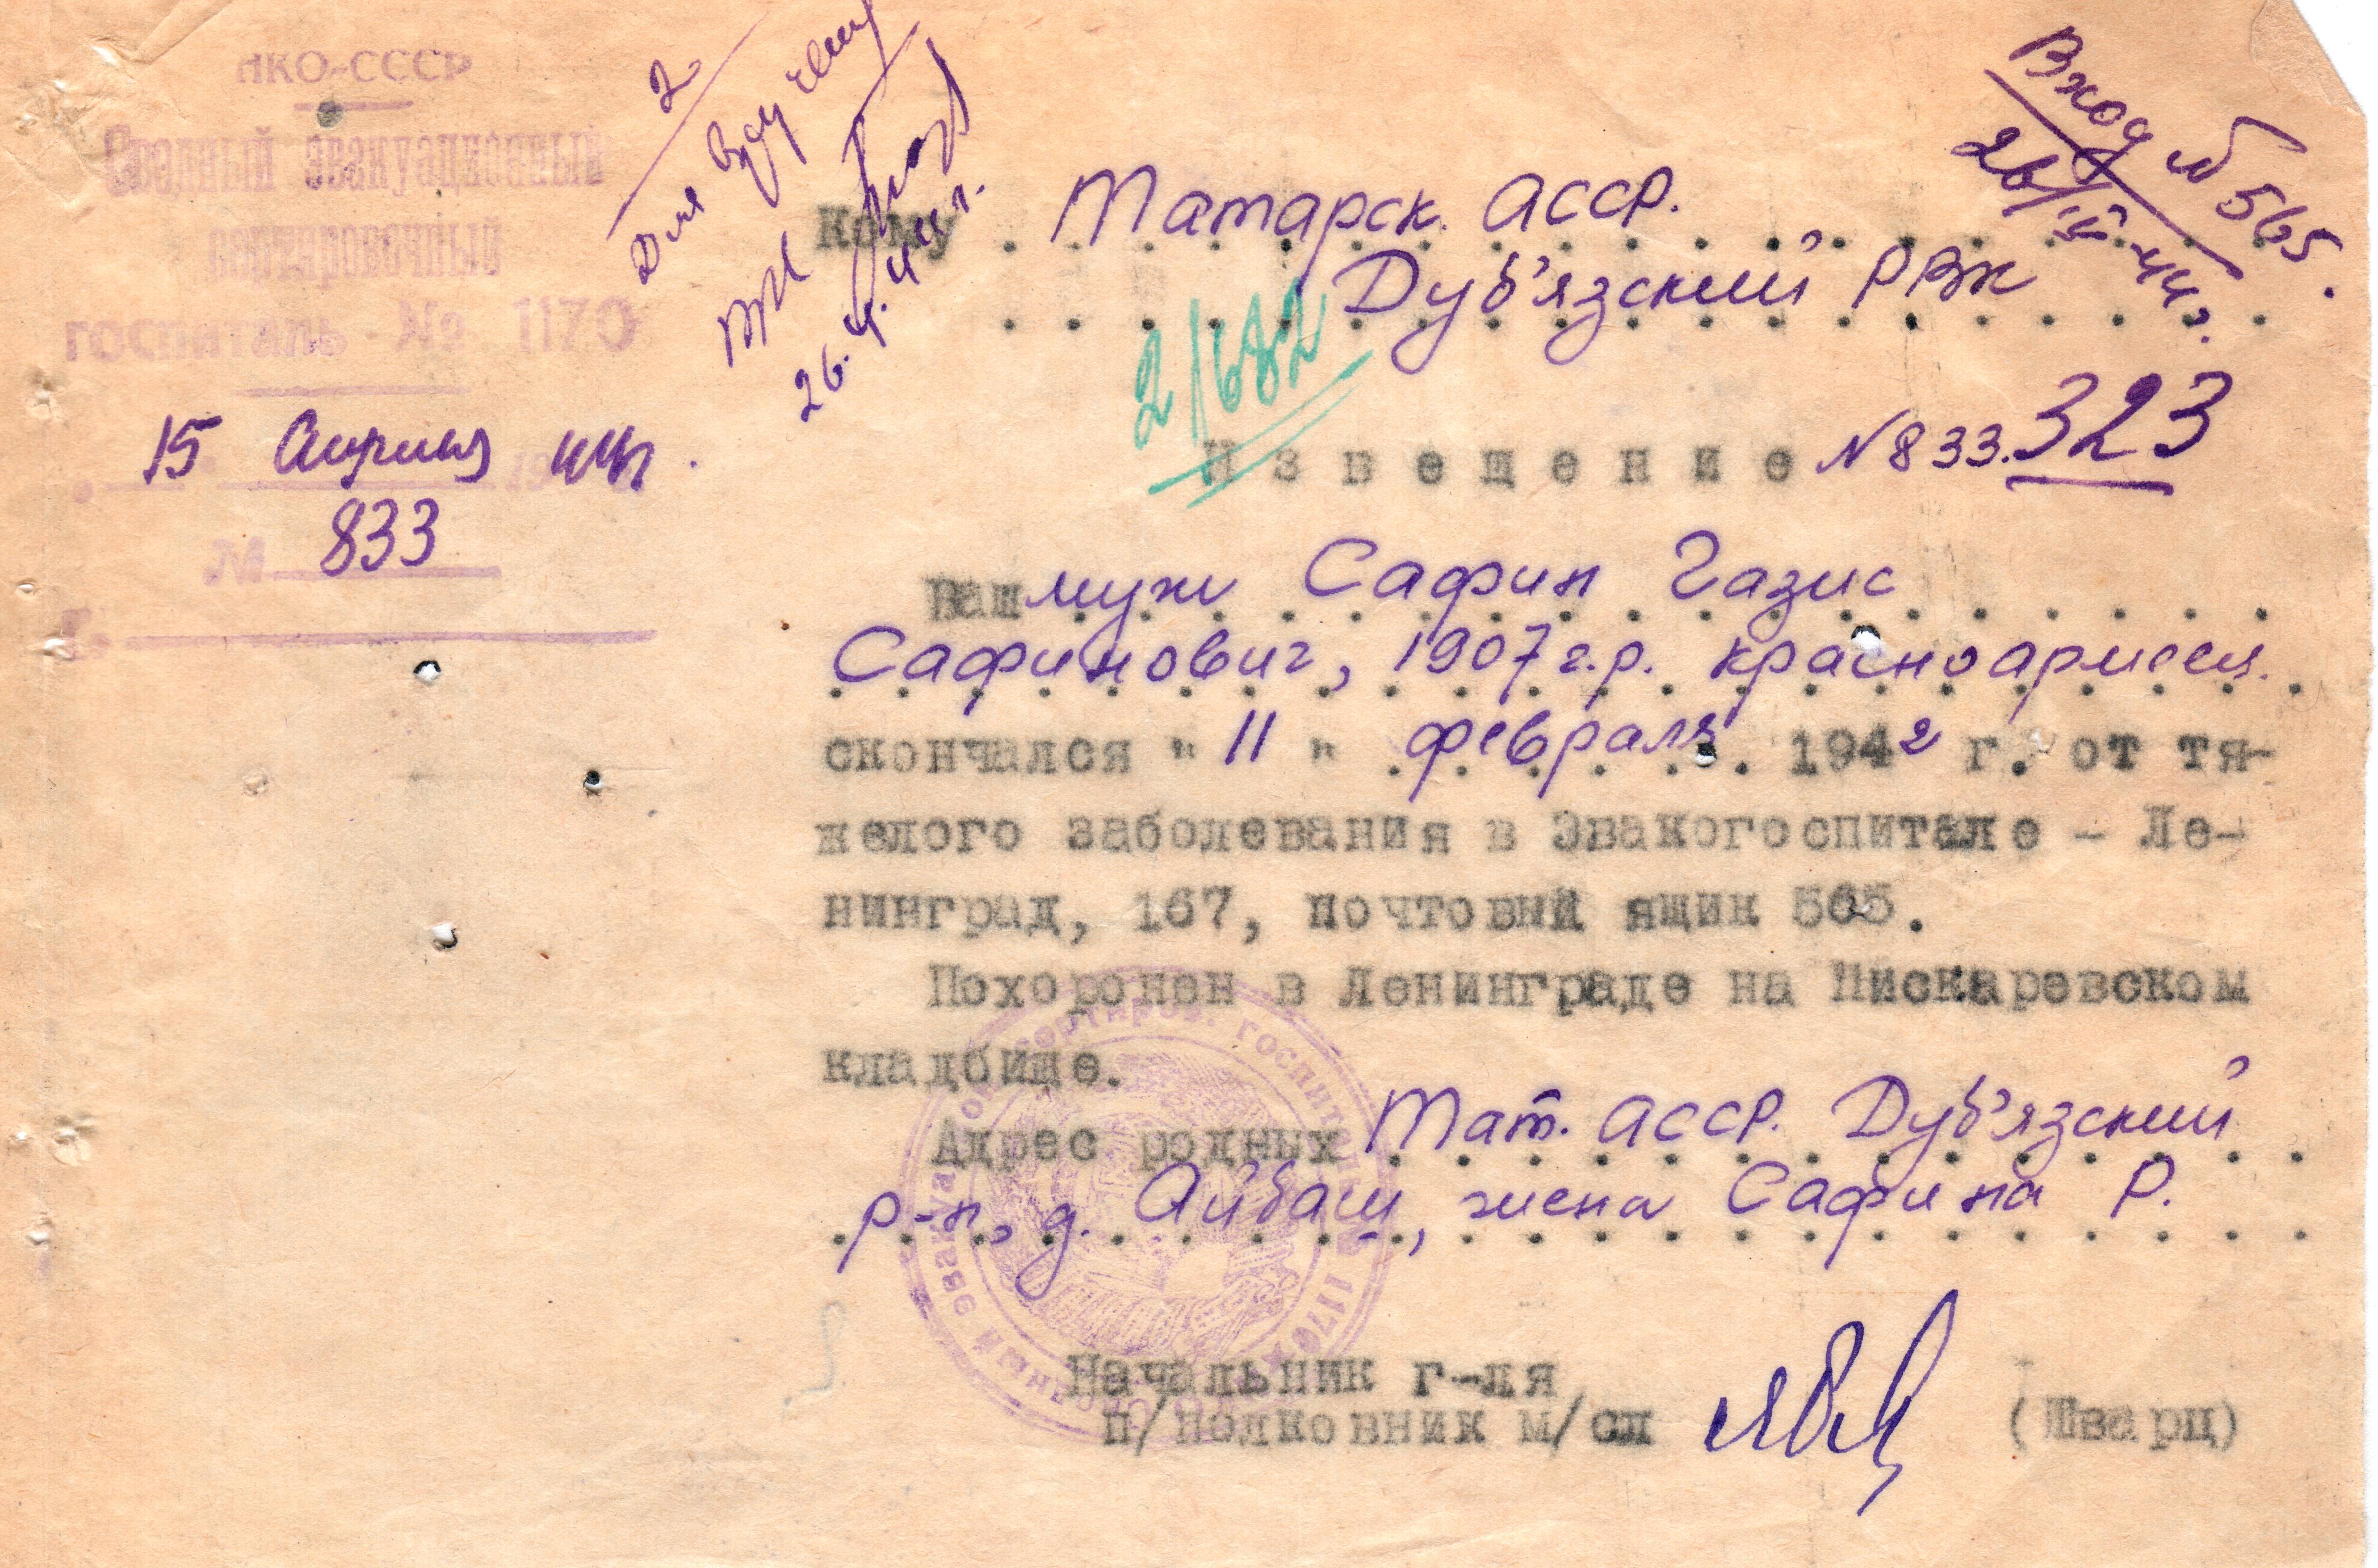 НКО-СССР
Сводный эвакуационный
сортировочный
госпиталь № 1170
15 Апреля 44г.
№ 833
г.
2
Для вручения
26.4.44г.
Вход № 565.
26/IV-44г.
Кому Татарск. АССР.
Дуб'язский РВК
2/682
Извещение №833. 323
Ваш муж Сафин Газис
Сафинович, 1907 г.р. красноармеец.
скончался "11" февраля 1942 г. от тя-
желого заболевания в Эвакогоспитале - Ле-
нинград, 167, почтовый ящик 565.
Похоронен в Ленинграде на Пискаревском
кладбище.
Адрес родных Тат. АССР. Дуб'язский
р-н, д. Айбаш, жена Сафина Р.
Начальник г-ля
п/полковник м/сл (Шварц)
Сводный эвакуацион. сортиров. госпиталь 1170